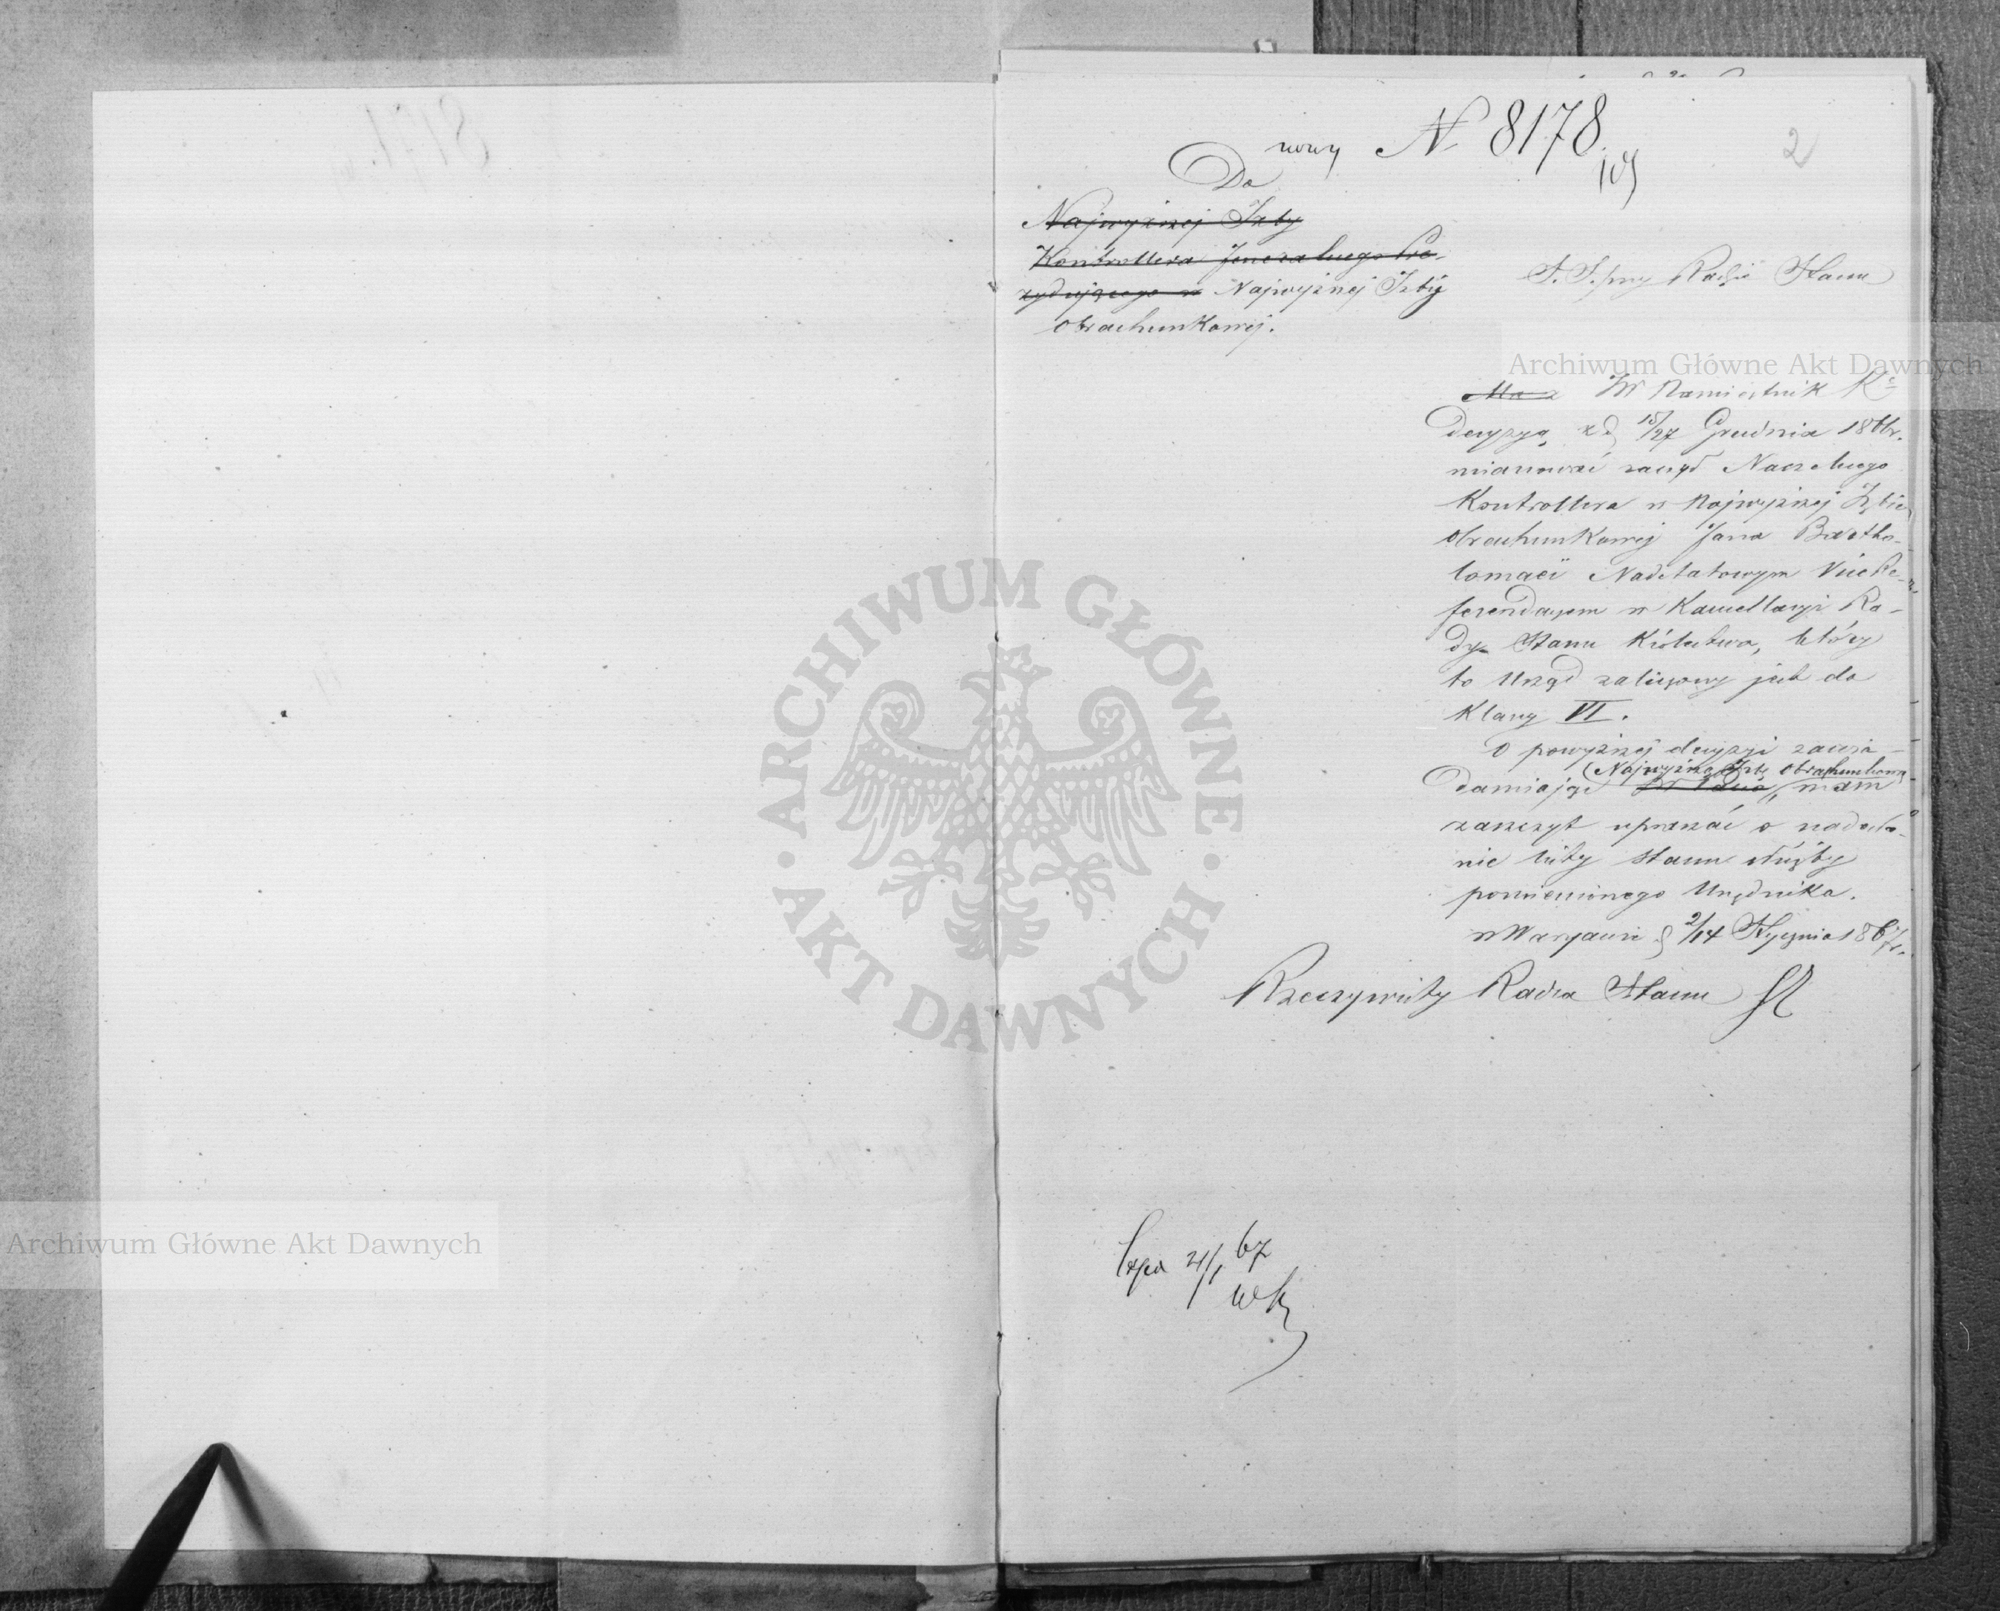 nowy N 8178.
2
Do
Najwyższej Izby
Kontrollera Jeneralnego Pre-
zydującego w Najwyższej Izby
obrachunkowej.
S. S. przy Radzie Stanu
Ma JW Namiestnik
Decyzyą z d. 15/27 Grudnia 1866 r.
mianować raczył Naczelnego
Kontrollera w Najwyższej Izbie
obrachunkowej Jana Bartho-
lomaei Nadetatowym Vice Re-
ferendarzem w Kancellaryi Ra-
dy Stanu Królestwa, który
to Urząd zaliczony jest do
Klassy VI.
O powyższej decyzyi zawia-
Najwyższą Izbę obrachunkową
damiając mam
zaszczyt upraszać o nadesła-
nie listy stanu służby
pomienionego Urzędnika.
w Warszawie d. 2/14 Stycznia 1867 r.
Rzeczywisty Radca Stanu
Exp. 21/1 67
Archiwum Główne Akt Dawnych
Archiwum Główne Akt Dawnych
ARCHIWUM GŁÓWNE
AKT DAWNYCH